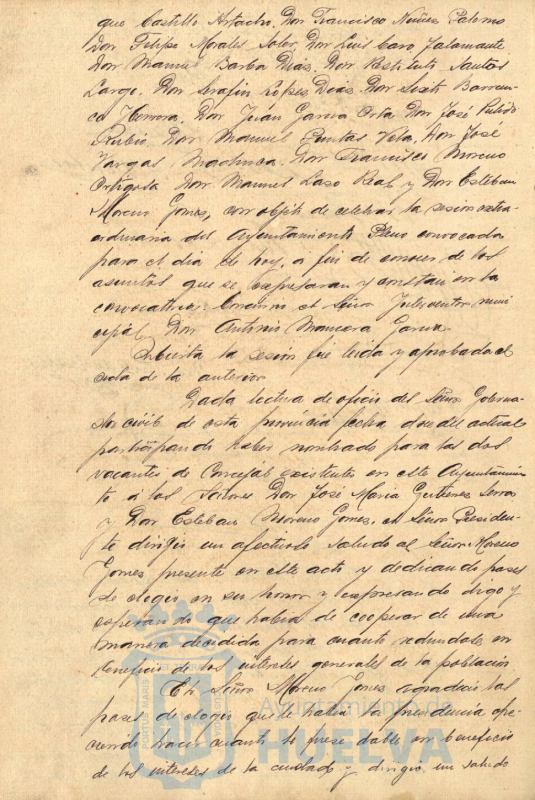 que Castillo Artacho, Don Francisco Núñez Palomo
Don Felipe Morales Soler, Don Luis Caro Jalamante
Don Manuel Barba Días, Don Restituto Santos
Largo, Don Serafin Lopes Deas, Don Sixto Barran-
co Herrera, Don Juan Garcia Orta Don José Pulido
Rubio, Don Manuel Puntas Vela, Don José
Vargas Machuca, Don Francisco Moreno
Ortigosa Don Manuel Laso Real y Don Esteban
Moreno Gomes, con objeto de celebrar la sesion extra-
ordinaria del Ayuntamiento Pleno convocada
para el dia de hoy, a fin de conocer de los
asuntos que se expresaran y constan en la
convocatoria. Concurrió el Señor Interventor muni
cipal Don Antonio Mancera Garcia
Abierta la sesión fué leida y aprobada el
acta de la anterior
Dada lectura de oficio del Señor Goberna-
dor civil de esta provincia fecha doce del actual
participando haber nombrado para las dos
vacantes de Concejal existentes en este Ayuntamien
to á los Señores Don José Maria Gutierres Serran
y Don Esteban Moreno Gomes, el Señor Presiden-
te dirigió un afectuoso saludo al Señor Moreno
Gomes presente en este acto y dedicando frases
de elogio en su honor y expresando digo y
esperando que habia de cooperar de una
manera decidida para cuanto redundase en
beneficio de los intereses generales de la población
El Señor Moreno Gomes agradeció las
frases de elogio que le habia la presidencia ofre
ciendo hacer cuanto le fuese dable en beneficio
de los intereses de la ciudad y dirigió un saludo
PORTUS MARIS
Ayuntamiento de
HUELVA